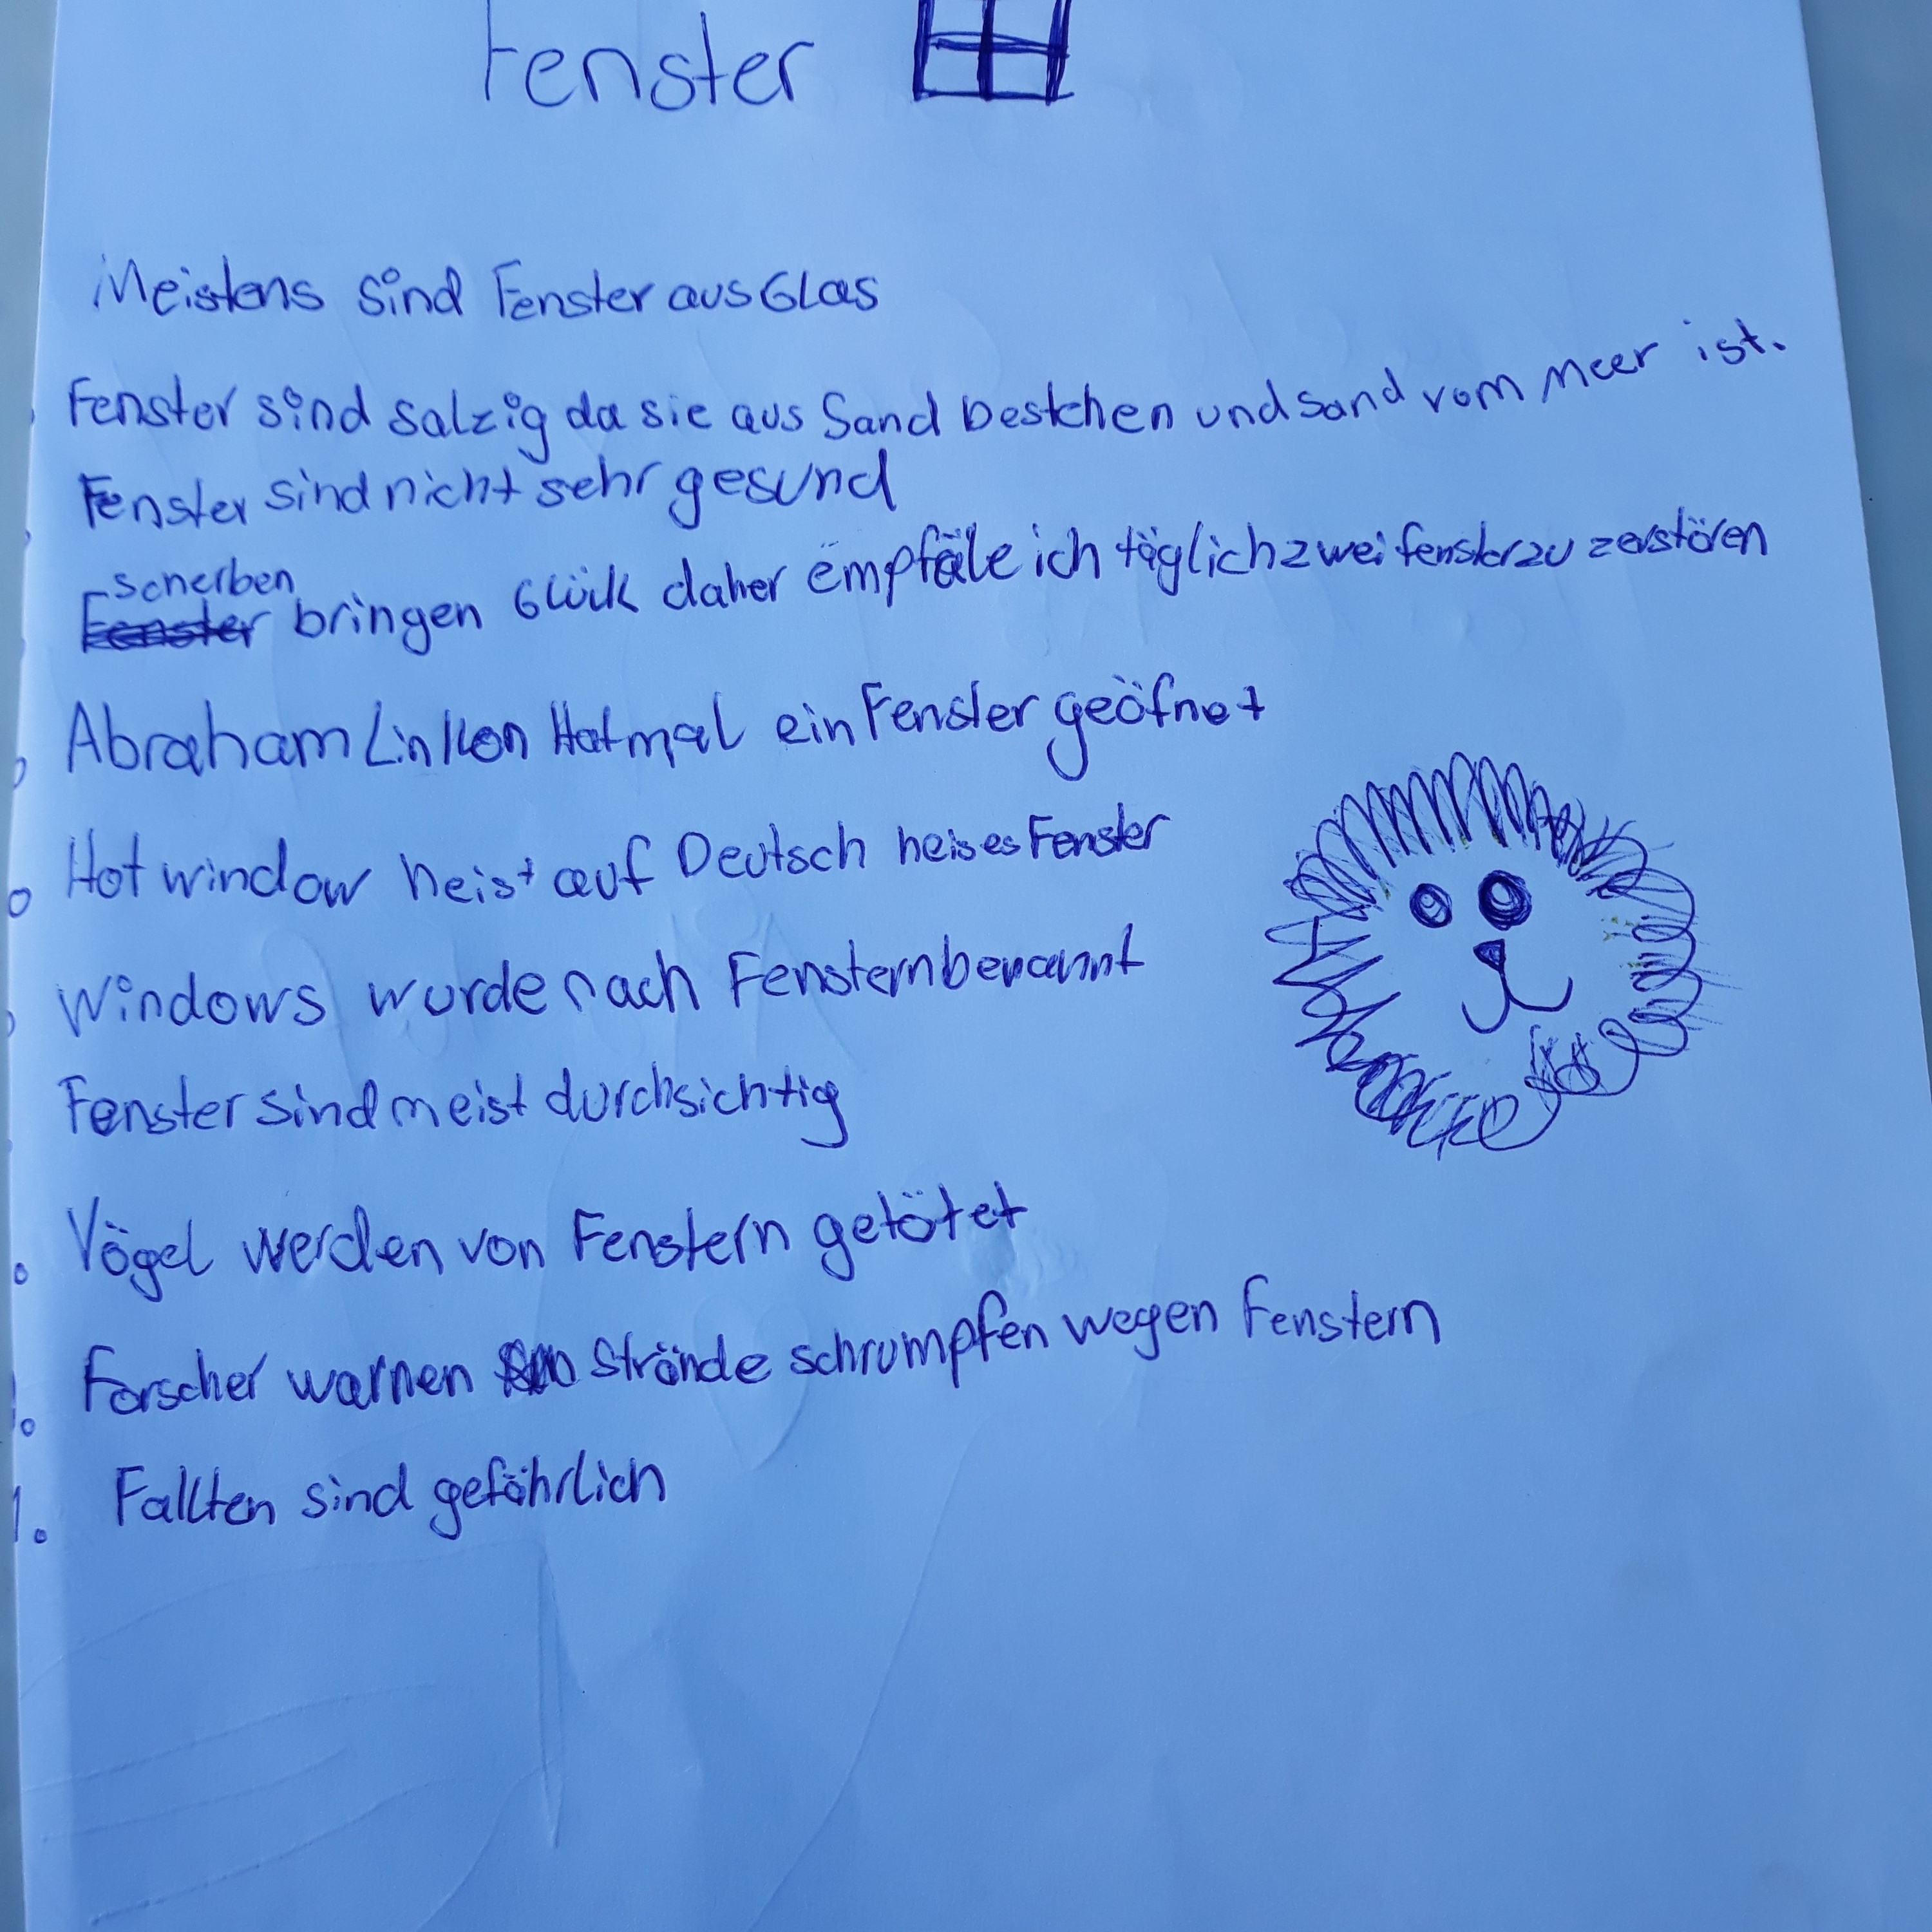 Fenster
Meistens sind Fenster aus Glas
Fenster sind salzig da sie aus Sand bestehen und sand vom meer ist.
Fenster sind nicht sehr gesund
scherben
Fenster bringen Glück daher empfäle ich täglich zwei fenster zu zerstören
Abraham Linkon Hat mal ein Fenster geöfnet
Hot window heist auf Deutsch heises Fenster
Windows wurde nach Fenstern benannt
Fenster sind meist durchsichtig
Vögel werden von Fenstern getötet
Forscher warnen Strände schrumpfen wegen Fenstern
Fallten sind gefährlich